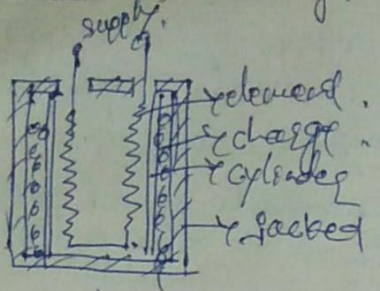 supply
element
charge
cylinder
jacked